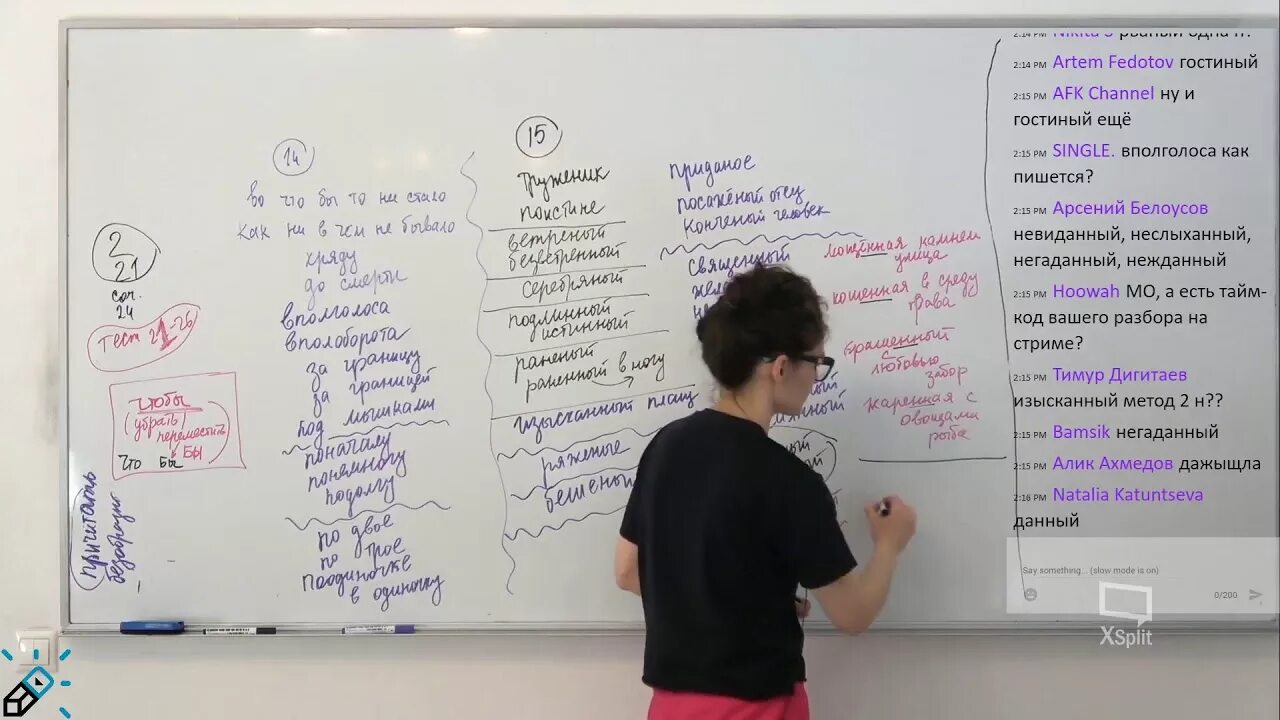 2
21
соч.
24
тест 21-26
чтобы
(убрать
переместить)
что бы
БЫ
причитать
безобразно
14
во что бы то ни стало
как ни в чем не бывало
хряду
до смерти
вполголоса
вполоборота
за границу
за границей
под мышками
поначалу
понемногу
подолгу
по двое
по трое
поодиночке
в одиночку
15
труженик
поистине
ветреный
безветренный
серебряный
подлинный
истинный
раненый
раненный в ногу
изысканный плащ
ряженые
бешеный
приданое
посажёный отец
конченый человек
священный
мощённая камнем
улица
кошенная в среду
трава
крашенный
с любовью
забор
жаренная с
овощами
рыба
2:14 PM Nikita S рваный одна н?
2:14 PM Artem Fedotov гостиный
2:15 PM AFK Channel ну и
гостиный ещё
2:15 PM SINGLE. вполголоса как
пишется?
2:15 PM Арсений Белоусов
невиданный, неслыханный,
негаданный, нежданный
2:15 PM Hoowah МО, а есть тайм-
код вашего разбора на
стриме?
2:15 PM Тимур Дигитаев
изысканный метод 2 н??
2:15 PM Bamsik негаданный
2:15 PM Алик Ахмедов дажыщла
2:16 PM Natalia Katuntseva
данный
Say something... (slow mode is on)
0/200
XSplit